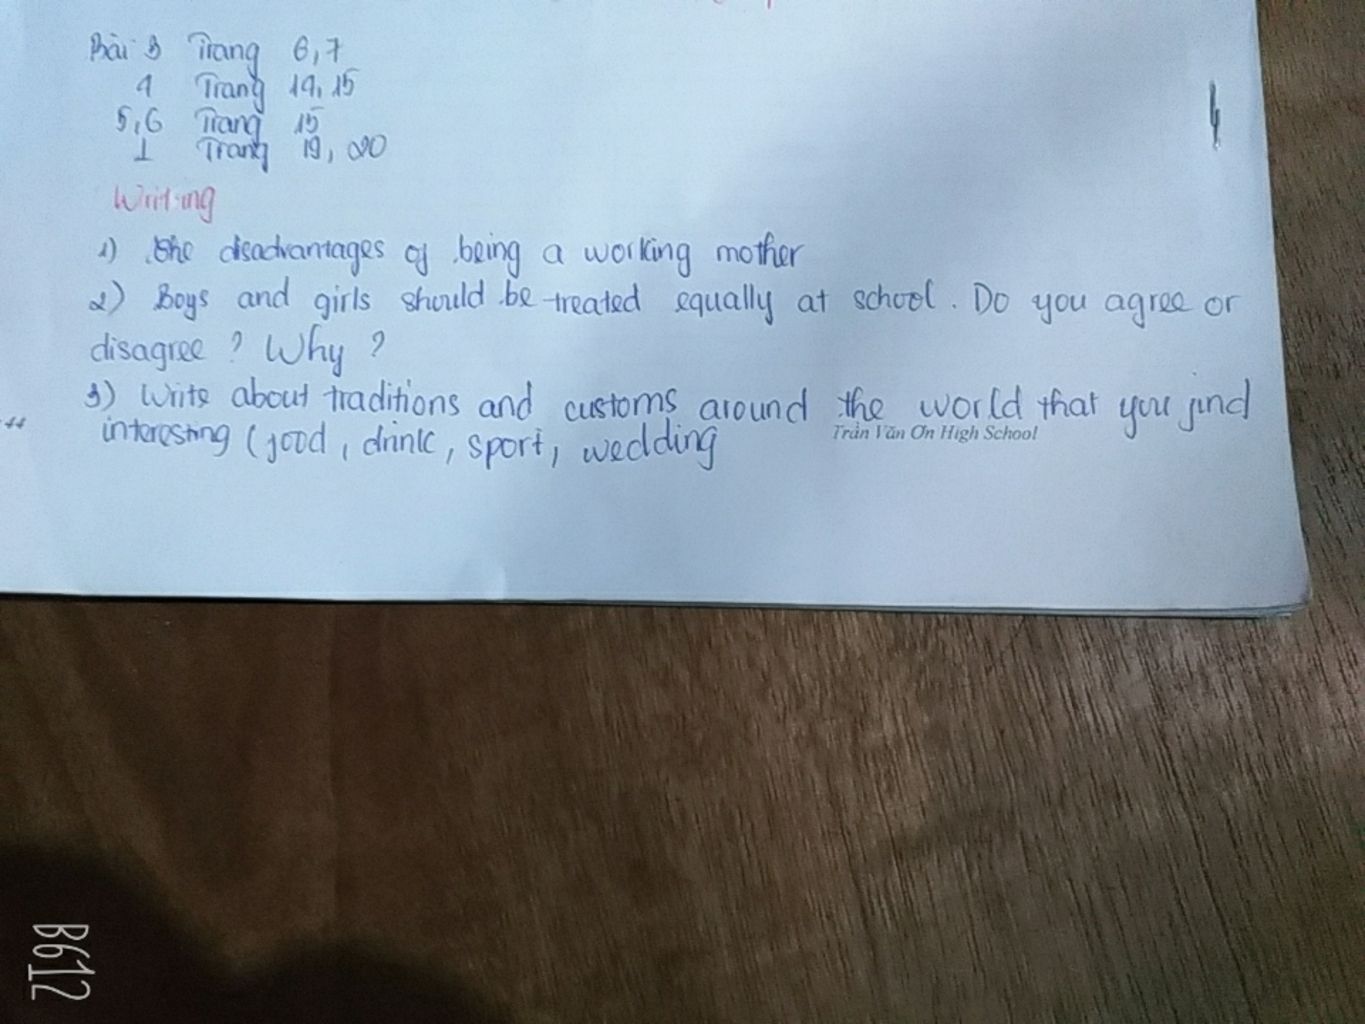 Bài 3 Trang 6,7
4 Trang 14, 15
5,6 Trang 15
1 Trang 19, 20
Writing
1) The disadvantages of being a working mother
2) Boys and girls should be treated equally at school. Do you agree or
disagree ? Why ?
3) Write about traditions and customs around the world that you find
Trần Văn Ơn High School
interesting (food, drink, sport, wedding
B612